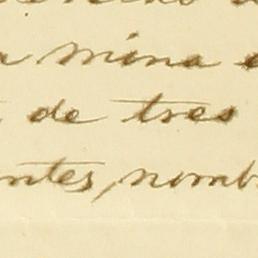 mina
de tres
ntes, nomb